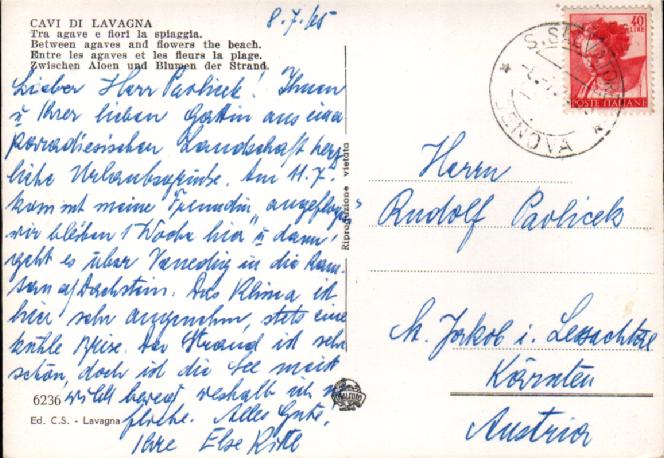 8.7.65
CAVI DI LAVAGNA
Tra agave e fiori la spiaggia.
Between agaves and flowers the beach.
Entre les agaves et les fleurs la plage.
Zwischen Aloen und Blumen der Strand.
Lieber Herr Pavlicek! Ihnen
u Ihrer lieben Gattin aus einer
paradiesischen Landschaft herz-
liche Urlaubsgrüsse. Am 11.7.
kommt meine Freundin "angeflogen"
wir bleiben 1 Woche hier u dann
geht es über Venedig in die Ram-
sau a/Dachstein. Das Klima ist
hier sehr angenehm, stets eine
kühle Brise. Der Strand ist sehr
schön, doch ist die See meist
wild bewegt weshalb ich
Alles Gute!
Ihre Else
6236
Ed. C.S. - Lavagna
Riproduzione vietata
40
LIRE
POSTE ITALIANE
S. SALVATORE
GENOVA
Herrn
Rudolf Pavlicek
St. Jakob i. Lessachtal
Kärnten
Austria